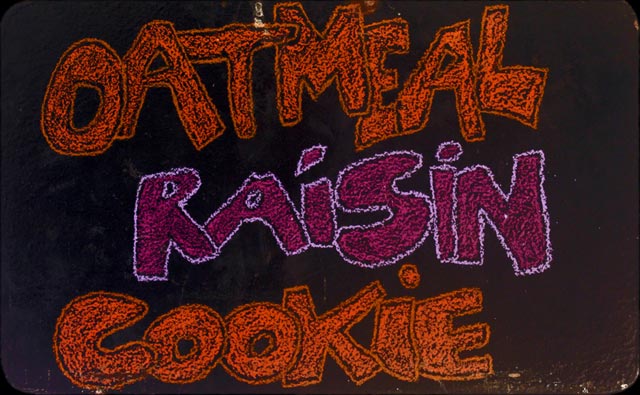 OATMEAL
RAiSiN
COOKiE